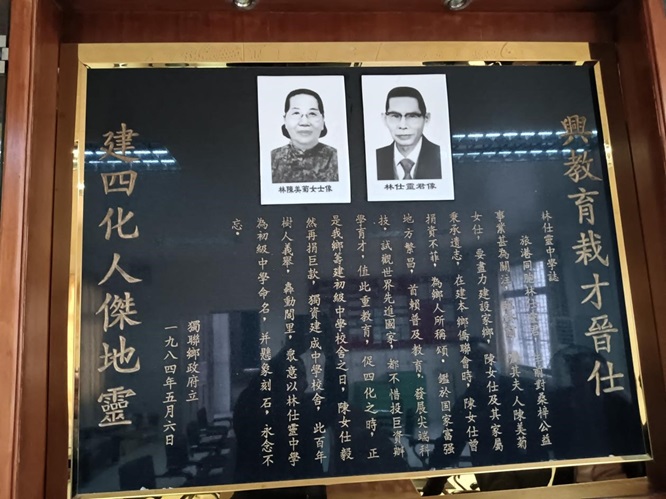 興教育栽才晉仕
林仕靈中學誌
旅港同胞林仕靈 對桑梓公益
事業甚為關注 其夫人陳美菊
女仕，要盡力建設家鄉，陳女仕及其家屬
秉承遺志，在建本鄉僑聯會時，陳女仕曾
捐資不菲，為鄉人所稱頌，鑑於國家富强
地方繁昌，首賴普及教育，發展尖端科
技，試觀世界先進國家，都不惜投巨資辦
學育才，值此重教育，促四化之時，正
是我鄉籌建初級中學校舍之日，陳女仕毅
然再捐巨款，獨資建成中學校舍，此百年
樹人義舉，轟動閭里，衆意以林仕靈中學
為初級中學命名，并懸象刻石，永念不
忘。
獨聯鄉政府立
一九八四年五月六日
建四化人傑地靈
林陳美菊女士像
林仕靈君像